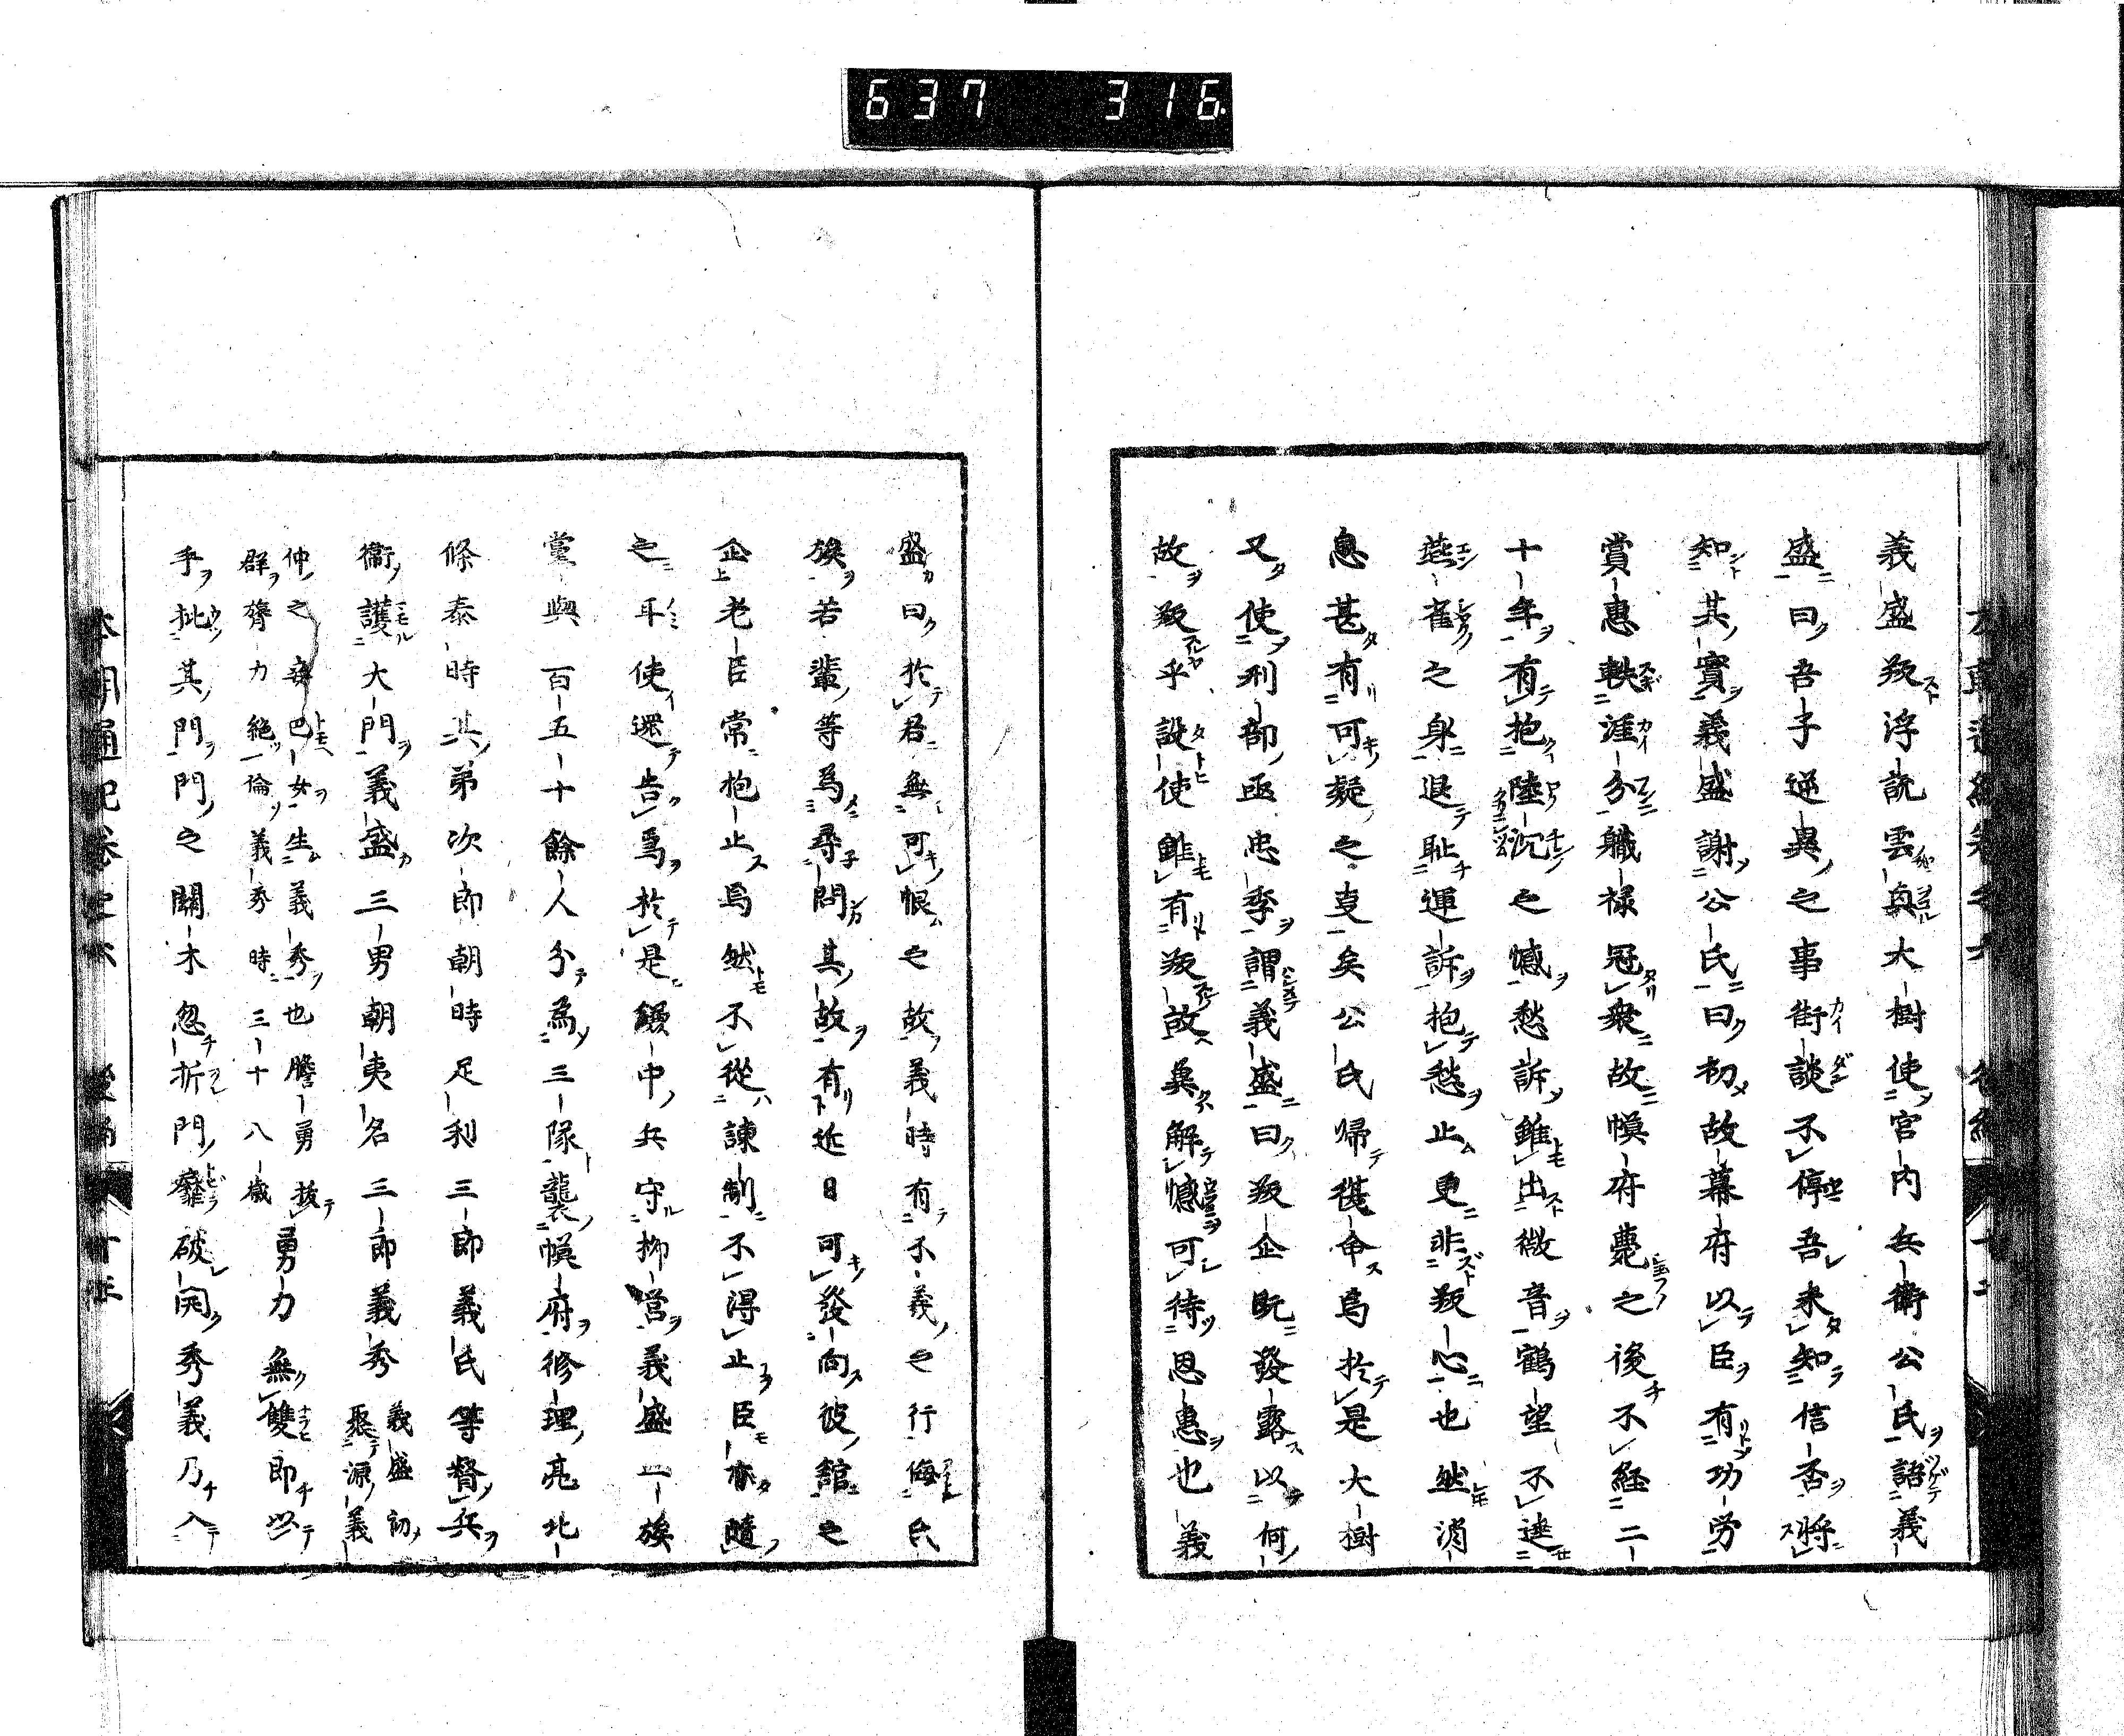 637 316
義盛叛浮説雲興大樹使官内兵衛公氏語義
盛曰吾子逆異之事街談不停吾未知信否將
知其實義盛謝公氏曰初故幕府以臣有功労
賞惠軼涯分軄禄冠衆故幙府薨之後不経二
十年有抱陸沉之憾愁訴雖出微音鶴望不達
燕雀之身退耻運訴抱愁止更非叛心也然消
息甚有可疑之叓矣公氏帰復命焉於是大樹
又使刑部亟忠季謂義盛曰叛企既發露以何
故叛乎設使雖有叛故奠解憾可待恩惠也義
盛曰於君無可恨之故義時有不義之行侮氏
族若輩等為尋問其故有近日可發向彼舘之
企老臣常抱止焉然不從諌制不得止臣亦隨
之耳使還告焉於是饅中兵守柳営義盛一族
黨與百五十餘人分為三隊襲幙府修理亮北
條泰時其弟次郎朝時足利三郎義氏等督兵
衞護大門義盛三男朝夷名三郎義秀 義盛初聚源義
仲之妾巴女生義秀也膽勇抜群膂力絶倫義秀時三十八歳 勇力無雙即以
手批其門門之關木忽折門靡破開秀義乃入
本朝通紀巻之六 後編 十三